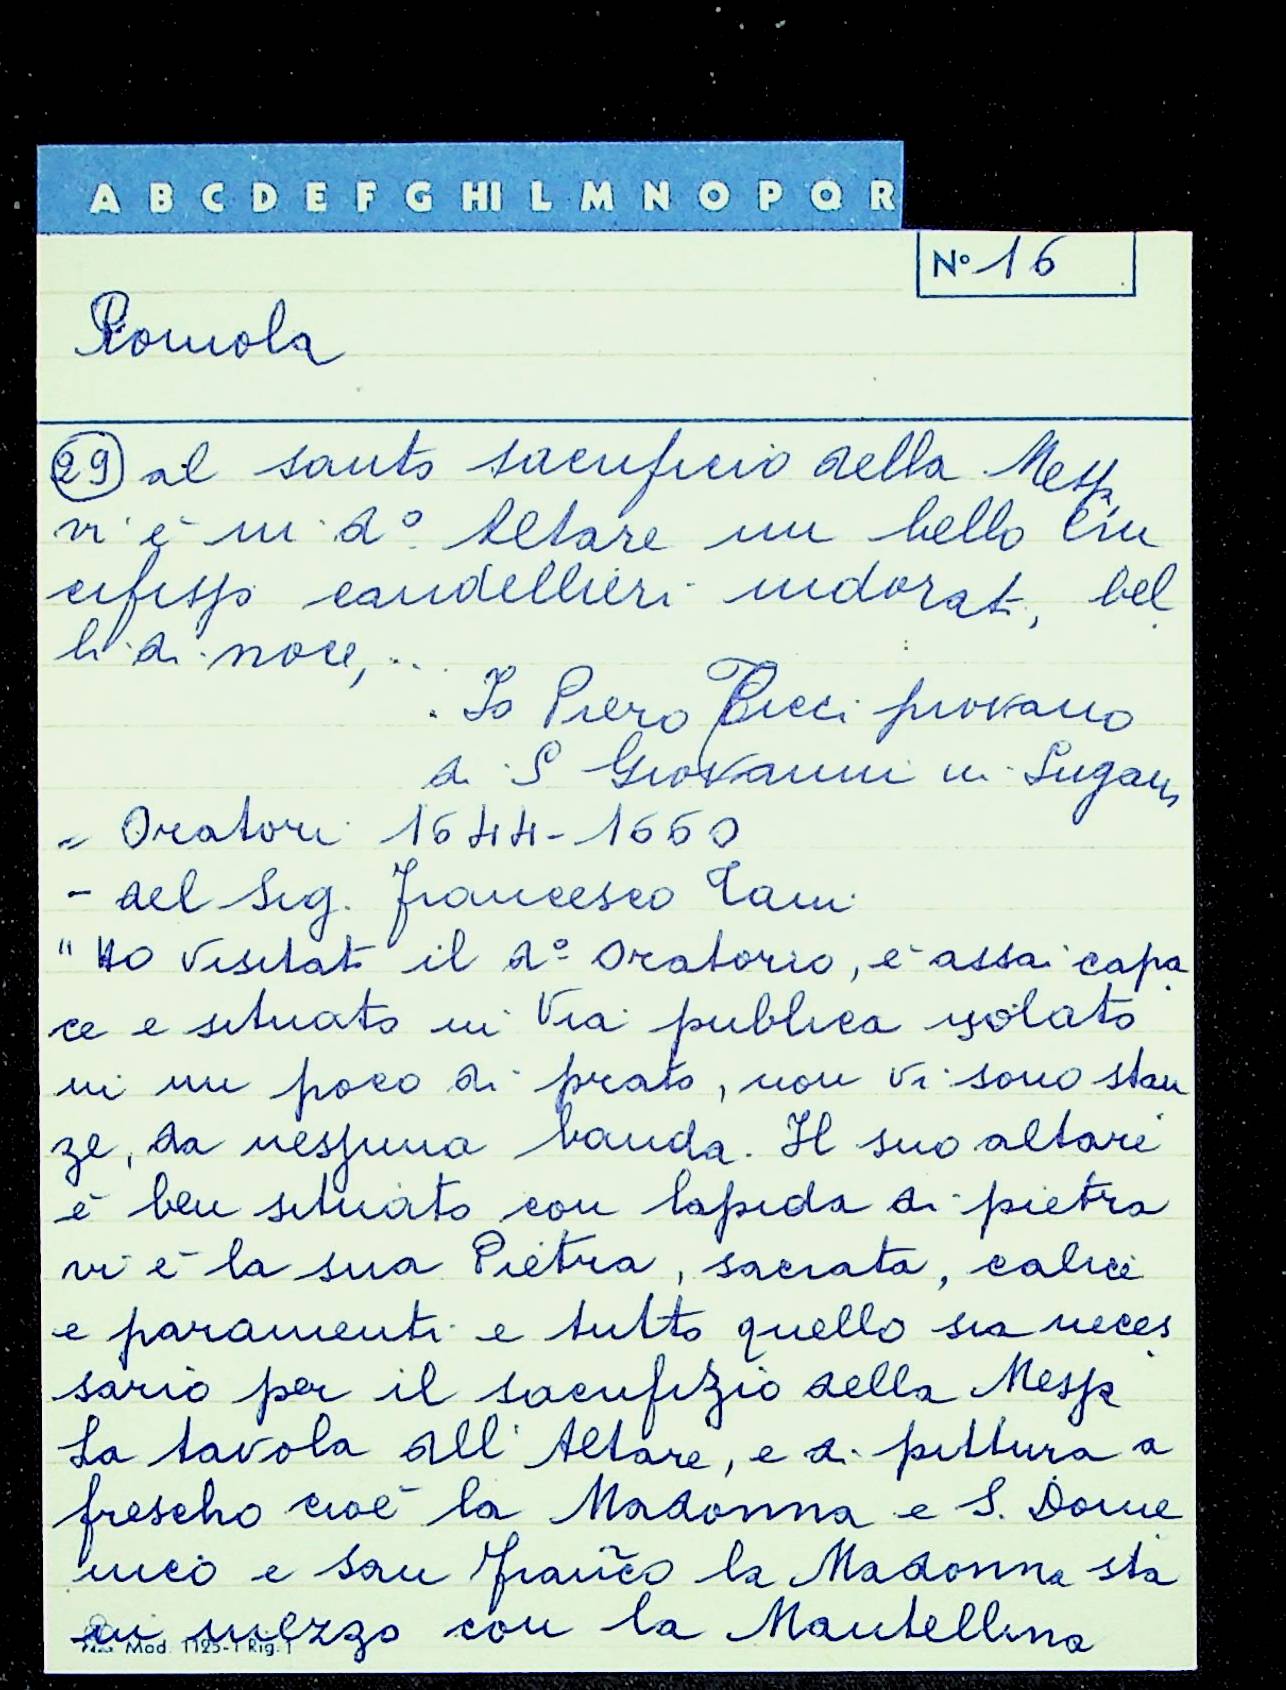 A B C D E F G HI L M N O P Q R
Nº 16
Romola
29 al santo sacrificio della Messa
vi è in dº. Altare un bello Cru
cifisso candellieri indorati, bel
li di noce, ...
Io Piero Ricci piovano
di S Giovanni in Sugano
= Oratori 1644-1660
- del Sig. Francesco Tani
"Ho visitati il dº oratorio, è assai capa
ce e situato in Via publica isolato
in un poco di prato, non vi sono stan
ze, da nessuna banda. Il suo altare
è ben situato con lapida di pietra
vi è la sua Pietra, sacrata, calice
e paramenti e tutto quello sia neces
sario per il sacrifizio della Messa
La tavola all' Altare, e di pittura a
frescho cioè la Madonna e S. Dome
nico e San Franco la Madonna sta
in mezzo con la Mantellina
Mod. 1125-1 Rig. 1